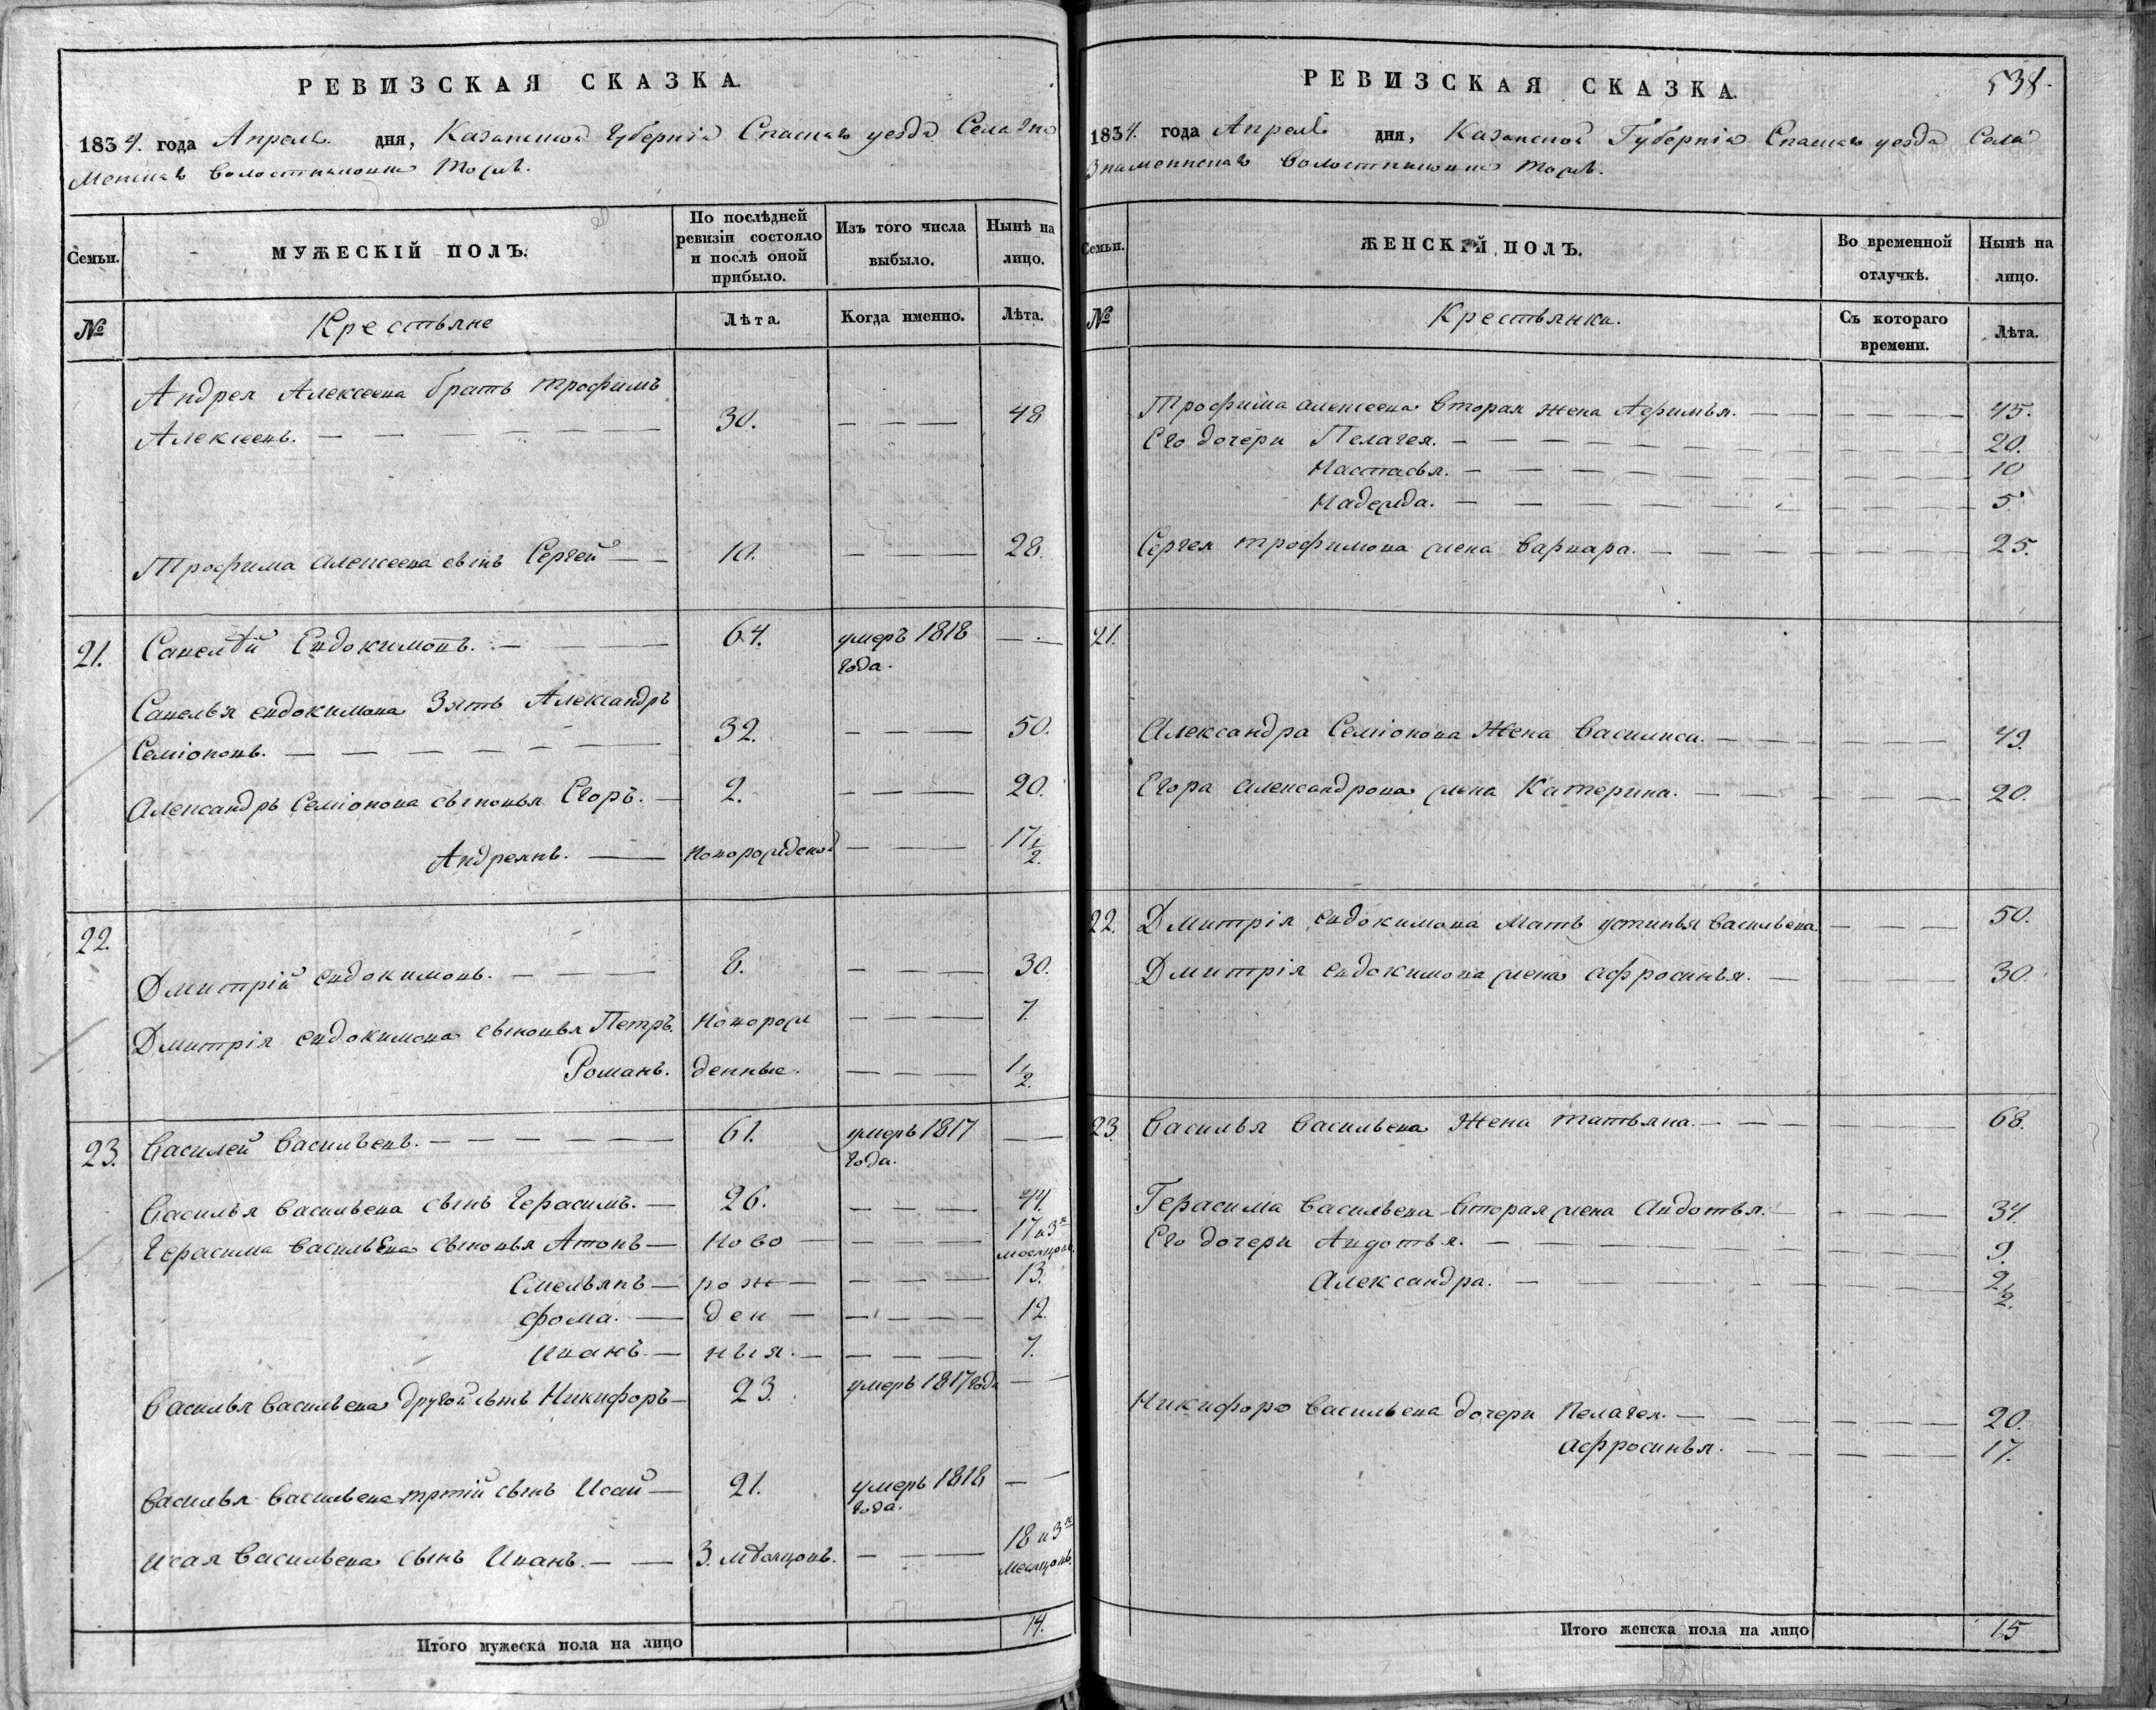 РЕВИЗСКАЯ СКАЗКА.
1834. года Апреля дня, Казанской Губернiи Спаскаго уезда Села Зна
менскаго Волостнымъ
Семьи.
МУЖЕСКІЙ ПОЛЪ.
По послѣдней
ревизіи состояло
и послѣ оной
прибыло.
Изъ того числа
выбыло.
Нынѣ на
лицо.
№
Крестьяне
Лѣта.
Когда именно.
Лѣта.
Андрея Алексеева братъ трофимъ
Алексеевъ. — 30. — 48
Трофима алексеева сынъ Сергей — 10. — 28.
21. Савелѣй Евдокимовъ. — 64. умеръ 1818 —
года.
Савелья евдокимова Зять Александръ
Семіоновъ. — 32. — 50.
Александръ Семіонова сыновья Егоръ. — 2. — 20.
Андреянъ. — новорожденой — 17 1/2.
22.
Дмитрій евдокимовъ. — 8. — 30.
Дмитрія евдокимова сыновья Петръ. Новорож — 7.
Романъ. денные. — 1/2.
23. Василей Васильевъ. — 61. умеръ 1817 —
года.
Василья васильева сынъ Герасимъ. — 26. — 44.
Герасима васильева сыновья Антонъ — ново — 17 и 3х
месяцовъ
Емельянъ — рож — 13.
фома. — ден — 12
Иванъ. — ныя. — 7.
Василья Васильева другой сынъ Никифоръ — 23. умеръ 1817 года —
Василья Васильева третій сынъ Исай — 21. умеръ 1818 —
года.
Исая Васильева сынъ Иванъ. — 3. мѣсяцовъ. — 18 и 3х
месяцовъ.
Итого мужеска пола на лицо 14.
РЕВИЗСКАЯ СКАЗКА.
538.
1834. года Апреля дня, Казанской Губерніи Спаскаго уезда Села
Знаменскаго Волостнымъ
Семьи.
ЖЕНСКІЙ ПОЛЪ.
Во временной
отлучкѣ.
Нынѣ на
лицо.
№
Крестьянки.
Съ котораго
времени.
Лѣта.
Трофима алексеева вторая жена Афимья. — 45.
Его дочери Пелагея. — 20.
Настасья. — 10
Надежда. — 5.
Сергея трофимова жена Варвара. — 25.
21.
Александра Семіонова Жена Василиса. — 49.
Егора александрова жена Катерина. — 20.
22. Дмитрія евдокимова Мать устинья Васильева — 50.
Дмитрія евдокимова жена афросинья. — 30.
23 Василья Васильева Жена татьяна. — 68.
Герасима Васильева Вторая жена Авдотья. — 34.
Его дочери Авдотья. — 9.
Александра. — 2 1/2.
Никифора Васильева дочери Пелагея. — 20.
афросинья. — 17.
Итого женска пола на лицо 15